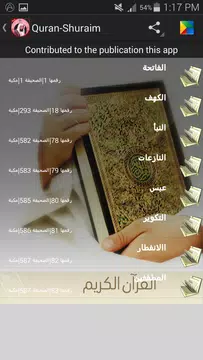 54% 1:17 PM
Quran-Shuraim
Contributed to the publication this app
الفاتحة
رقمها 1|الصحيفة 1|مكية
الكهف
رقمها 18|الصحيفة 293|مكية
النبأ
رقمها 78|الصحيفة 582|مكية
النازعات
رقمها 79|الصحيفة 583|مكية
عبس
رقمها 80|الصحيفة 585|مكية
التكوير
رقمها 81|الصحيفة 586|مكية
الانفطار
رقمها 82|الصحيفة 587|مكية
المطففين
القرآن الكريم